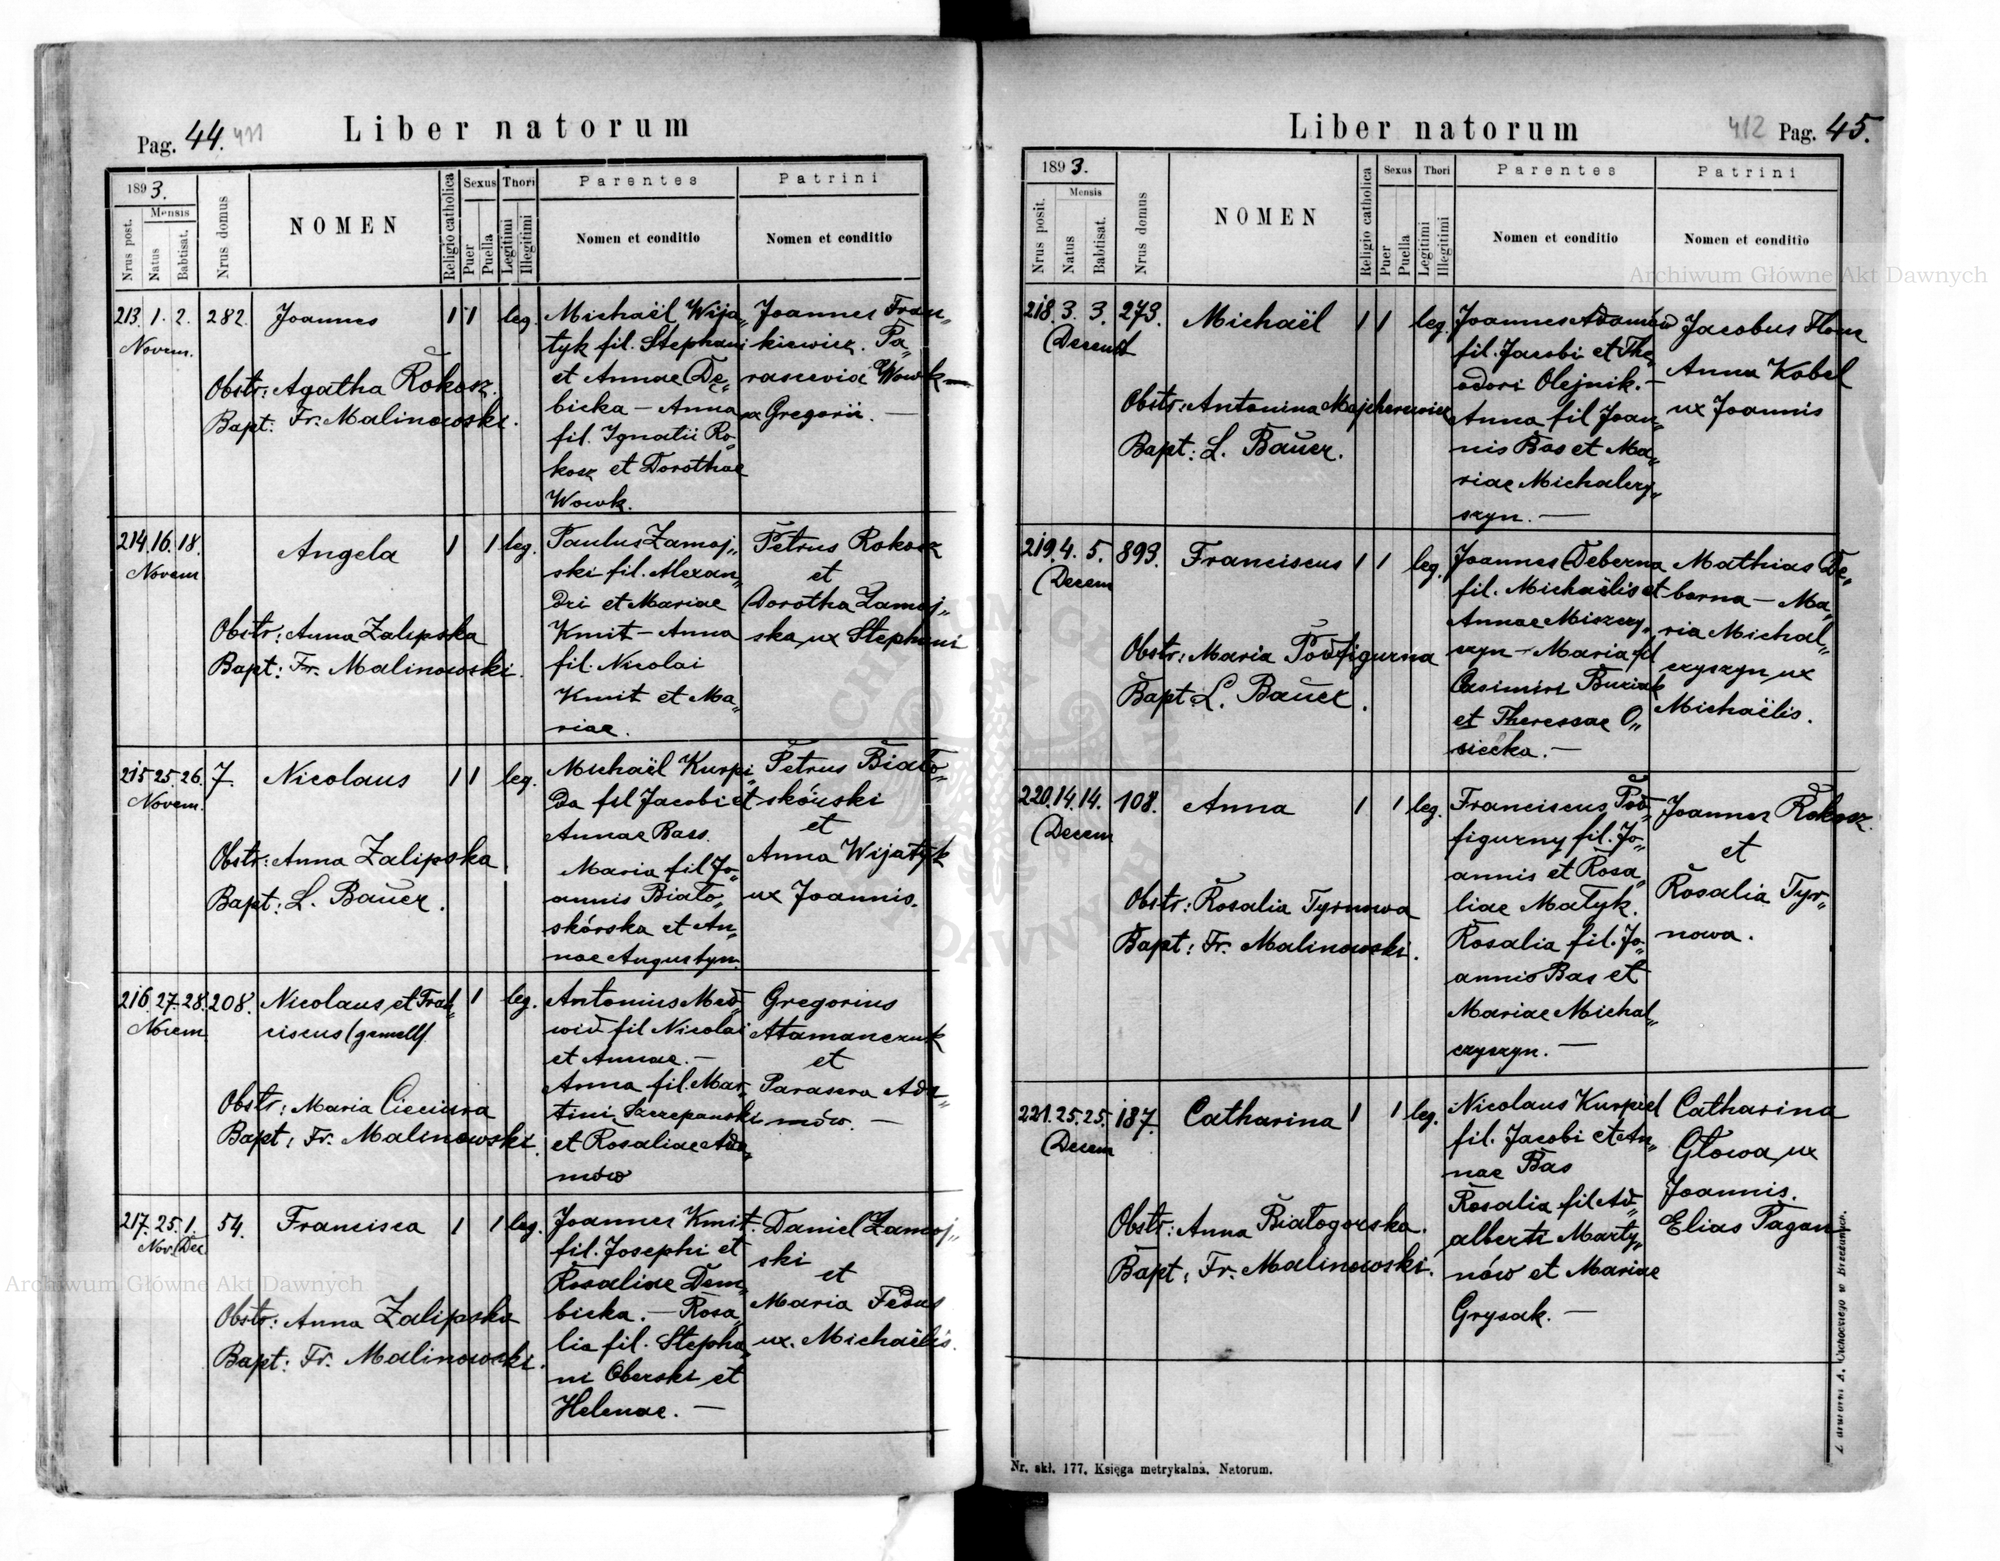 Pag. 44. 411
Liber natorum
1893.
Nrus post.
Mensis
Natus
Babtisat.
Nrus domus
NOMEN
Religio catholica
Sexus
Puer
Puella
Thori
Legitimi
Illegitimi
Parentes
Nomen et conditio
Patrini
Nomen et conditio
213. 1. 2. 282. Joannes 1 1 leg.
Novem.
Obstr: Agatha Rokosz.
Bapt: Fr. Malinowski.
Michaël Wija„
tyk fil. Stephani
et Annae Dę„
bicka — Anna
fil. Ignatii Ro„
kosz et Dorothae
Wowk.
Joannes Fran„
kiewicz. Pa„
rascevia Wowk —
ux Gregorii. —
214. 16. 18. Angela 1 1 leg.
Novem
Obstr: Anna Zalipska
Bapt: Fr. Malinowski.
Paulus Zamoj„
ski fil. Alexan„
dri et Mariae
Kmit — Anna
fil. Nicolai
Kmit et Ma„
riae.
Petrus Rokosz
et
Dorotha Zamoj„
ska ux Stephani
215 25. 26. 7. Nicolaus 1 1 leg.
Novem.
Obstr: Anna Zalipska
Bapt: L. Bauer.
Michaël Kurpi„
da fil Jacobi et
Annae Bass.
Maria fil Jo„
annis Biało„
skórska et An„
nae Augustyn.
Petrus Biało„
skórski
et
Anna Wijatyk
ux Joannis.
216. 27. 28. 208. Nicolaus et Fran„ 1 1 leg.
Novem
ciscus (gemelli)
Obstr: Maria Cieciura
Bapt: Fr. Malinowski.
Antonius Med„
wid fil Nicolai
et Annae. —
Anna fil. Mar„
tini Szczepanski
et Rosaliae Ada„
mów
Gregorius
Atamanczuk
et
Parascra Ada„
mów. —
217. 25. 1. 54. Francisca 1 1 leg.
Nov. Dec.
Obstr: Anna Zalipska
Bapt: Fr. Malinowski.
Joannes Kmit.
fil. Josephi et
Rosaliae Dem„
bicka. — Rosa„
lia fil. Stepha„
ni Oberski et
Helenae. —
Daniel Zamoj„
ski
et
Maria Fedus
ux. Michaëlis.
Liber natorum
412 Pag. 45.
1893.
Nrus posit.
Mensis
Natus
Babtisat.
Nrus domus
NOMEN
Religio catholica
Sexus
Puer
Puella
Thori
Legitimi
Illegitimi
Parentes
Nomen et conditio
Patrini
Nomen et conditio
218. 3. 3. 273. Michaël 1 1 leg.
Decem
Obstr: Antonina Majcherowicz
Bapt: L. Bauer.
Joannes Adamów
fil. Jacobi et The„
odori Olejnik. —
Anna fil Joan„
nis Bas et Ma„
riae Michalczy„
szyn. —
Jacobus
Anna Kobel
ux Joannis
219. 4. 5. 893. Franciscus 1 1 leg.
Decem
Obstr: Maria Podfigurna
Bapt L. Bauer.
Joannes Deberna
fil. Michaëlis et
Annae Miszczy„
szyn — Maria fil
Casimiri Buziak
et Theressae O„
siecka. —
Mathias De„
berna — Ma„
ria Michal„
czyszyn ux
Michaëlis.
220. 14. 14. 108. Anna 1 1 leg.
Decem
Obstr: Rosalia Tyrnowa
Bapt: Fr. Malinowski.
Franciscus Pod„
figurny fil. Jo„
annis et Rosa„
liae Matyk.
Rosalia fil. Jo„
annis Bas et
Mariae Michal„
czyszyn. —
Joannes Rokosz.
et
Rosalia Tyr„
nowa.
221. 25. 25. 187. Catharina 1 1 leg.
Decem
Obstr: Anna Białogorska.
Bapt: Fr. Malinowski.
Nicolaus Kurpiel
fil. Jacobi et An„
nae Bas
Rosalia fil Ad„
alberti Marty„
nów et Mariae
Grysak. —
Catharina
Głowa ux
Joannis.
Elias Pagan
Nr. skł. 177. Księga metrykalna. Natorum.
Archiwum Główne Akt Dawnych
Archiwum Główne Akt Dawnych